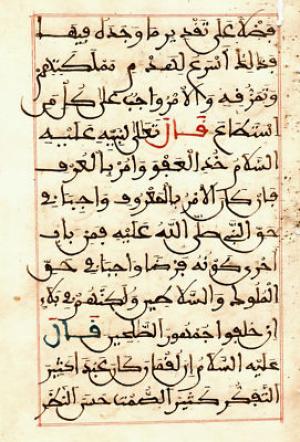 فضلا على تقدير ما وجد له فيها
فذلك أسرع لهدم مملكتهم
وتمزقه والامر واجب على كل من
استطاع قال تعالى لنبيه عليه
السلام خذ العفو وامر بالعرف
فان كان الامر بالمعروف واجبا في
حق النبي صلى الله عليه فمن باب
احرى كونه فرضا واجبا في حق
الملوك والسلاطين ولكنهم في بلاء
اذ خلفوا جمهور الظلمين قال
عليه السلام ان لقمان كان عبدا كثير
التفكر كثير الصمت حسن النظر